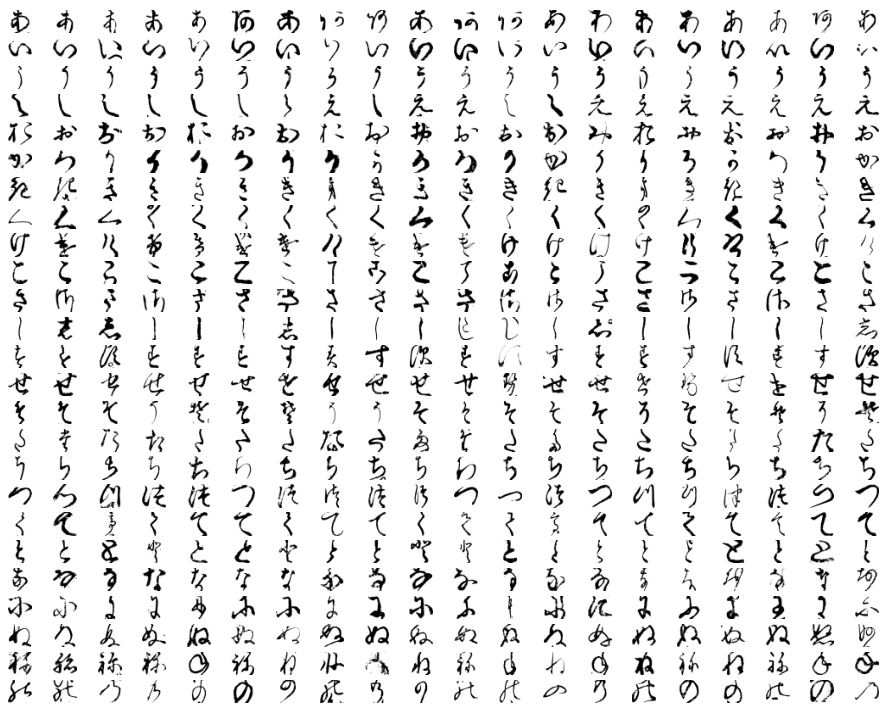 ああああああああああああああああああああ
いいいいいいいいいいいいいいいいいいいい
うううううううううううううううううううう
ええええええええええええええええええええ
おおおおおおおおおおおおおおおおおおおお
かかかかかかかかかかかかかかかかかかかか
きききききききききききききききききききき
くくくくくくくくくくくくくくくくくくくく
けけけけけけけけけけけけけけけけけけけけ
ここここここここここここここここここここ
ささささささささささささささささささささ
しししししししししししししししししししし
すすすすすすすすすすすすすすすすすすすす
せせせせせせせせせせせせせせせせせせせせ
そそそそそそそそそそそそそそそそそそそそ
たたたたたたたたたたたたたたたたたたたた
ちちちちちちちちちちちちちちちちちちちち
つつつつつつつつつつつつつつつつつつつつ
てててててててててててててててててててて
とととととととととととととととととととと
なななななななななななななななななななな
にににににににににににににににににににに
ぬぬぬぬぬぬぬぬぬぬぬぬぬぬぬぬぬぬぬぬ
ねねねねねねねねねねねねねねねねねねねね
のののののののののののののののののののの